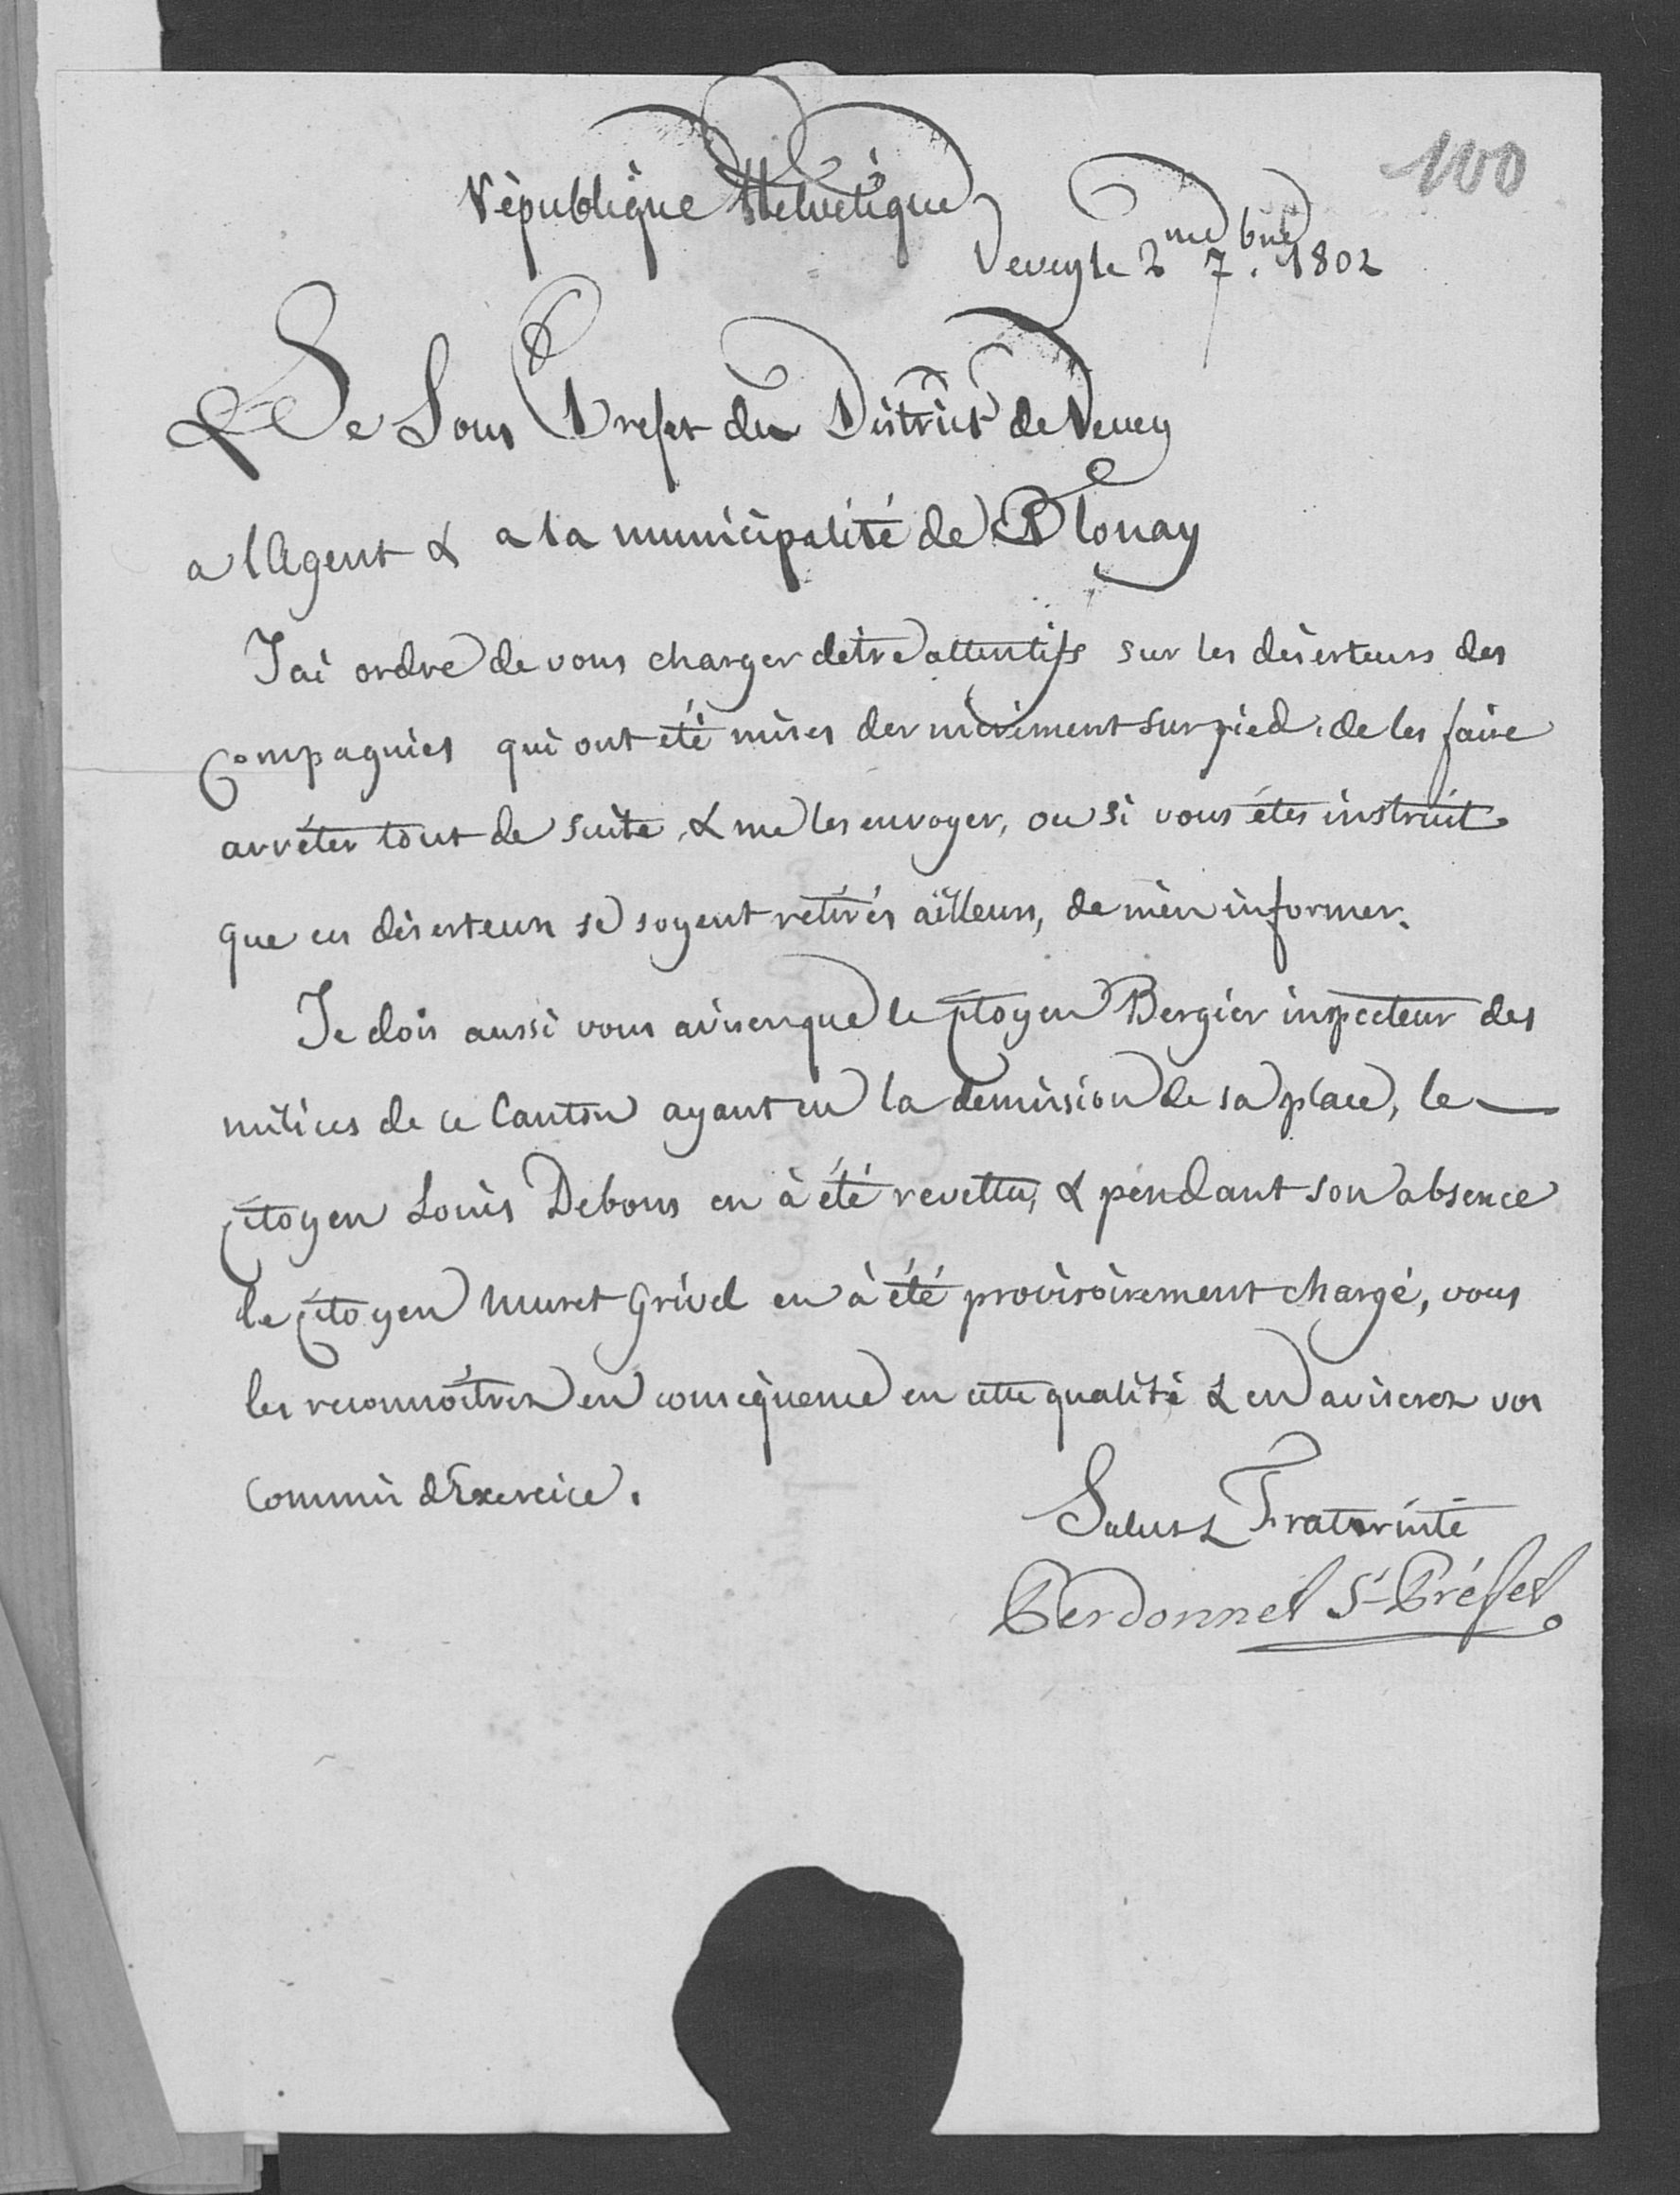 100
République Helvétique
Vevey le 2me 7bre. 1802
Le Sous Prefet du District de Vevey
a l'Agent & a la municipalité de Blonay
J'ai ordre de vous charger detre attentifs sur les déserteurs des
Compagnies qui ont été mises derniérement sur pied, de les faire
arréter tout de suite, & me les envoyer, ou si vous étes instruit
que ces déserteurs se soyent retirés ailleurs, de m'en informer.
Je dois aussi vous aviser que le Citoyen Bergier inspecteur des
milices de ce Canton ayant eu la demission de sa place, le
Citoyen Louis Debons en à été revettu, & pendant son absence
le Citoyen Muret Grivel en à été provisoirement chargé, vous
les reconnoîtrez en conséquence en cette qualité & en aviserez vos
Commis d'Exercice.
Salut & Fraternité
Perdonnet Ss-Préfet